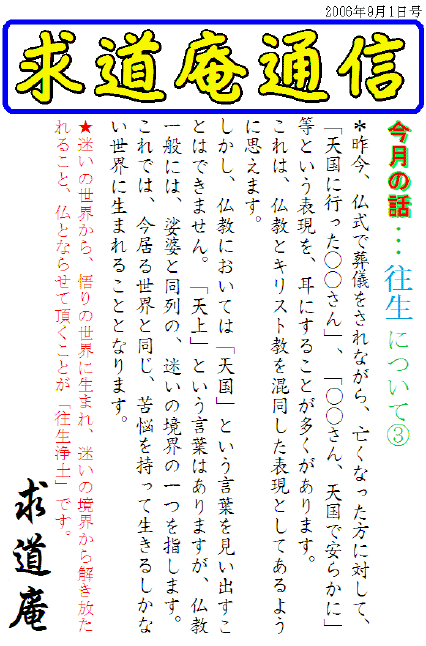 2006年9月1日号
求道庵通信
今月の話…往生について③
＊昨今、仏式で葬儀をされながら、亡くなった方に対して、
「天国に行った〇〇さん」、「〇〇さん、天国で安らかに」
等という表現を、耳にすることが多くがあります。
これは、仏教とキリスト教を混同した表現としてあるよう
に思えます。
しかし、仏教においては「天国」という言葉を見い出すこ
とはできません。「天上」という言葉はありますが、仏教
一般には、娑婆と同列の、迷いの境界の一つを指します。
これでは、今居る世界と同じ、苦悩を持って生きるしかな
い世界に生まれることとなります。
★迷いの世界から、悟りの世界に生まれ、迷いの境界から解き放た
れること、仏とならせて頂くことが「往生浄土」です。
求道庵